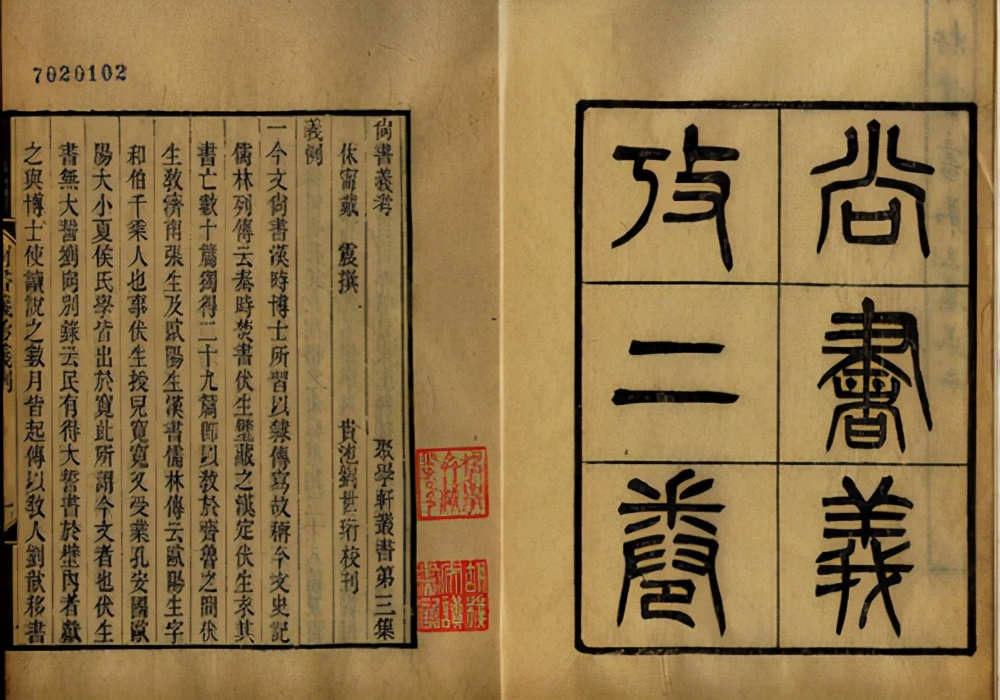 尚書義
攷二卷
7020102
尙書義考 聚學軒叢書第三集
休寗戴 震撰 貴池劉世珩校刊
義例
一今文尙書漢時博士所習以隸傳寫故稱今文史記
儒林列傳云秦時焚書伏生壁藏之漢定伏生求其
書亡數十篇獨得二十九篇卽以敎於齊魯之間伏
生敎濟南張生及歐陽生漢書儒林傳云歐陽生字
和伯千乘人也事伏生授兒寬寬又受業孔安國歐
陽大小夏侯氏學皆出於寬此所謂今文者也伏生
書無大誓劉向別錄云民有得大誓書於壁內者獻
之與博士使讀說之數月皆起傳以敎人劉歆移書